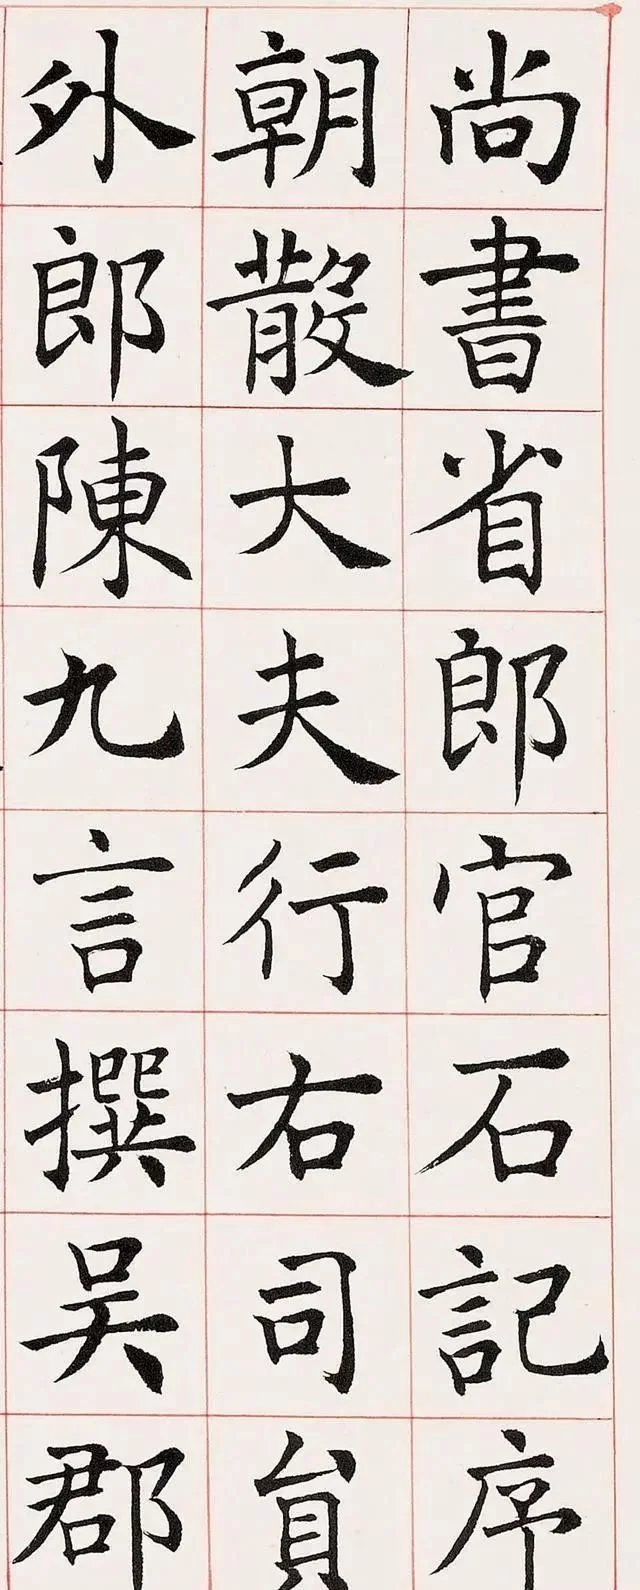 尚書省郎官石記序
朝散大夫行右司員
外郎陳九言撰吴郡